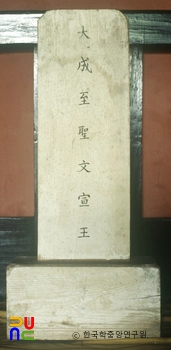 大成至聖文宣王
© 한국학중앙연구원